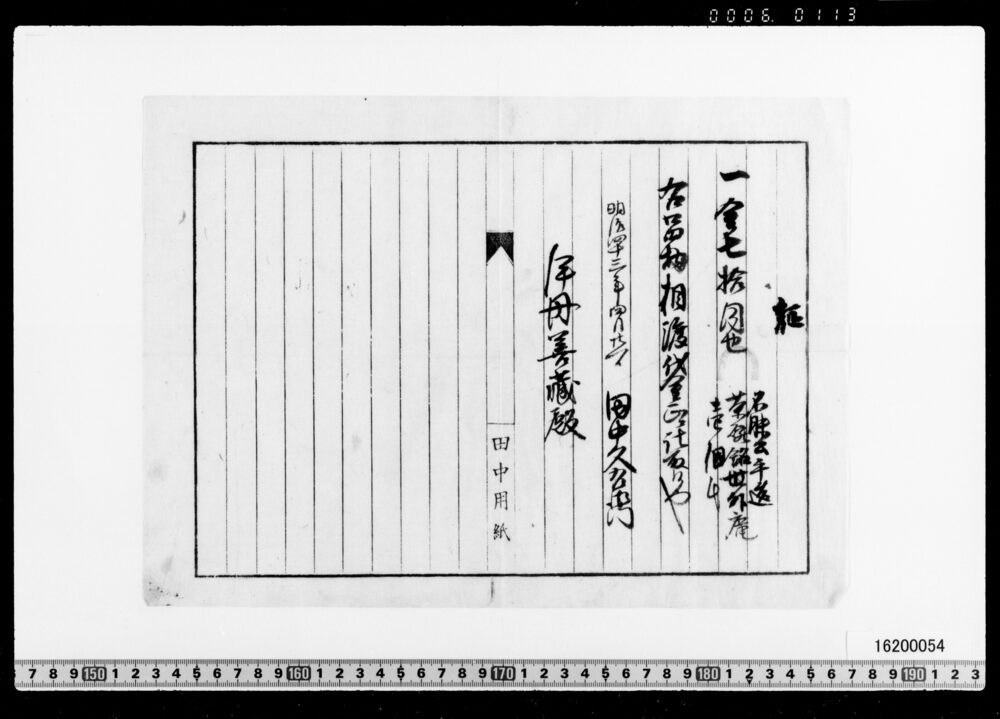 0006. 0113
証
一金七拾円也
茶碗銘世外庵
壱個
右品物相渡代金正ニ請取候也
明治四十三年四月廿六日
田中久右衛門
伊丹善蔵殿
田中用紙
16200054
7 8 9 150 1 2 3 4 5 6 7 8 9 160 1 2 3 4 5 6 7 8 9 170 1 2 3 4 5 6 7 8 9 180 1 2 3 4 5 6 7 8 9 190 1 2 3